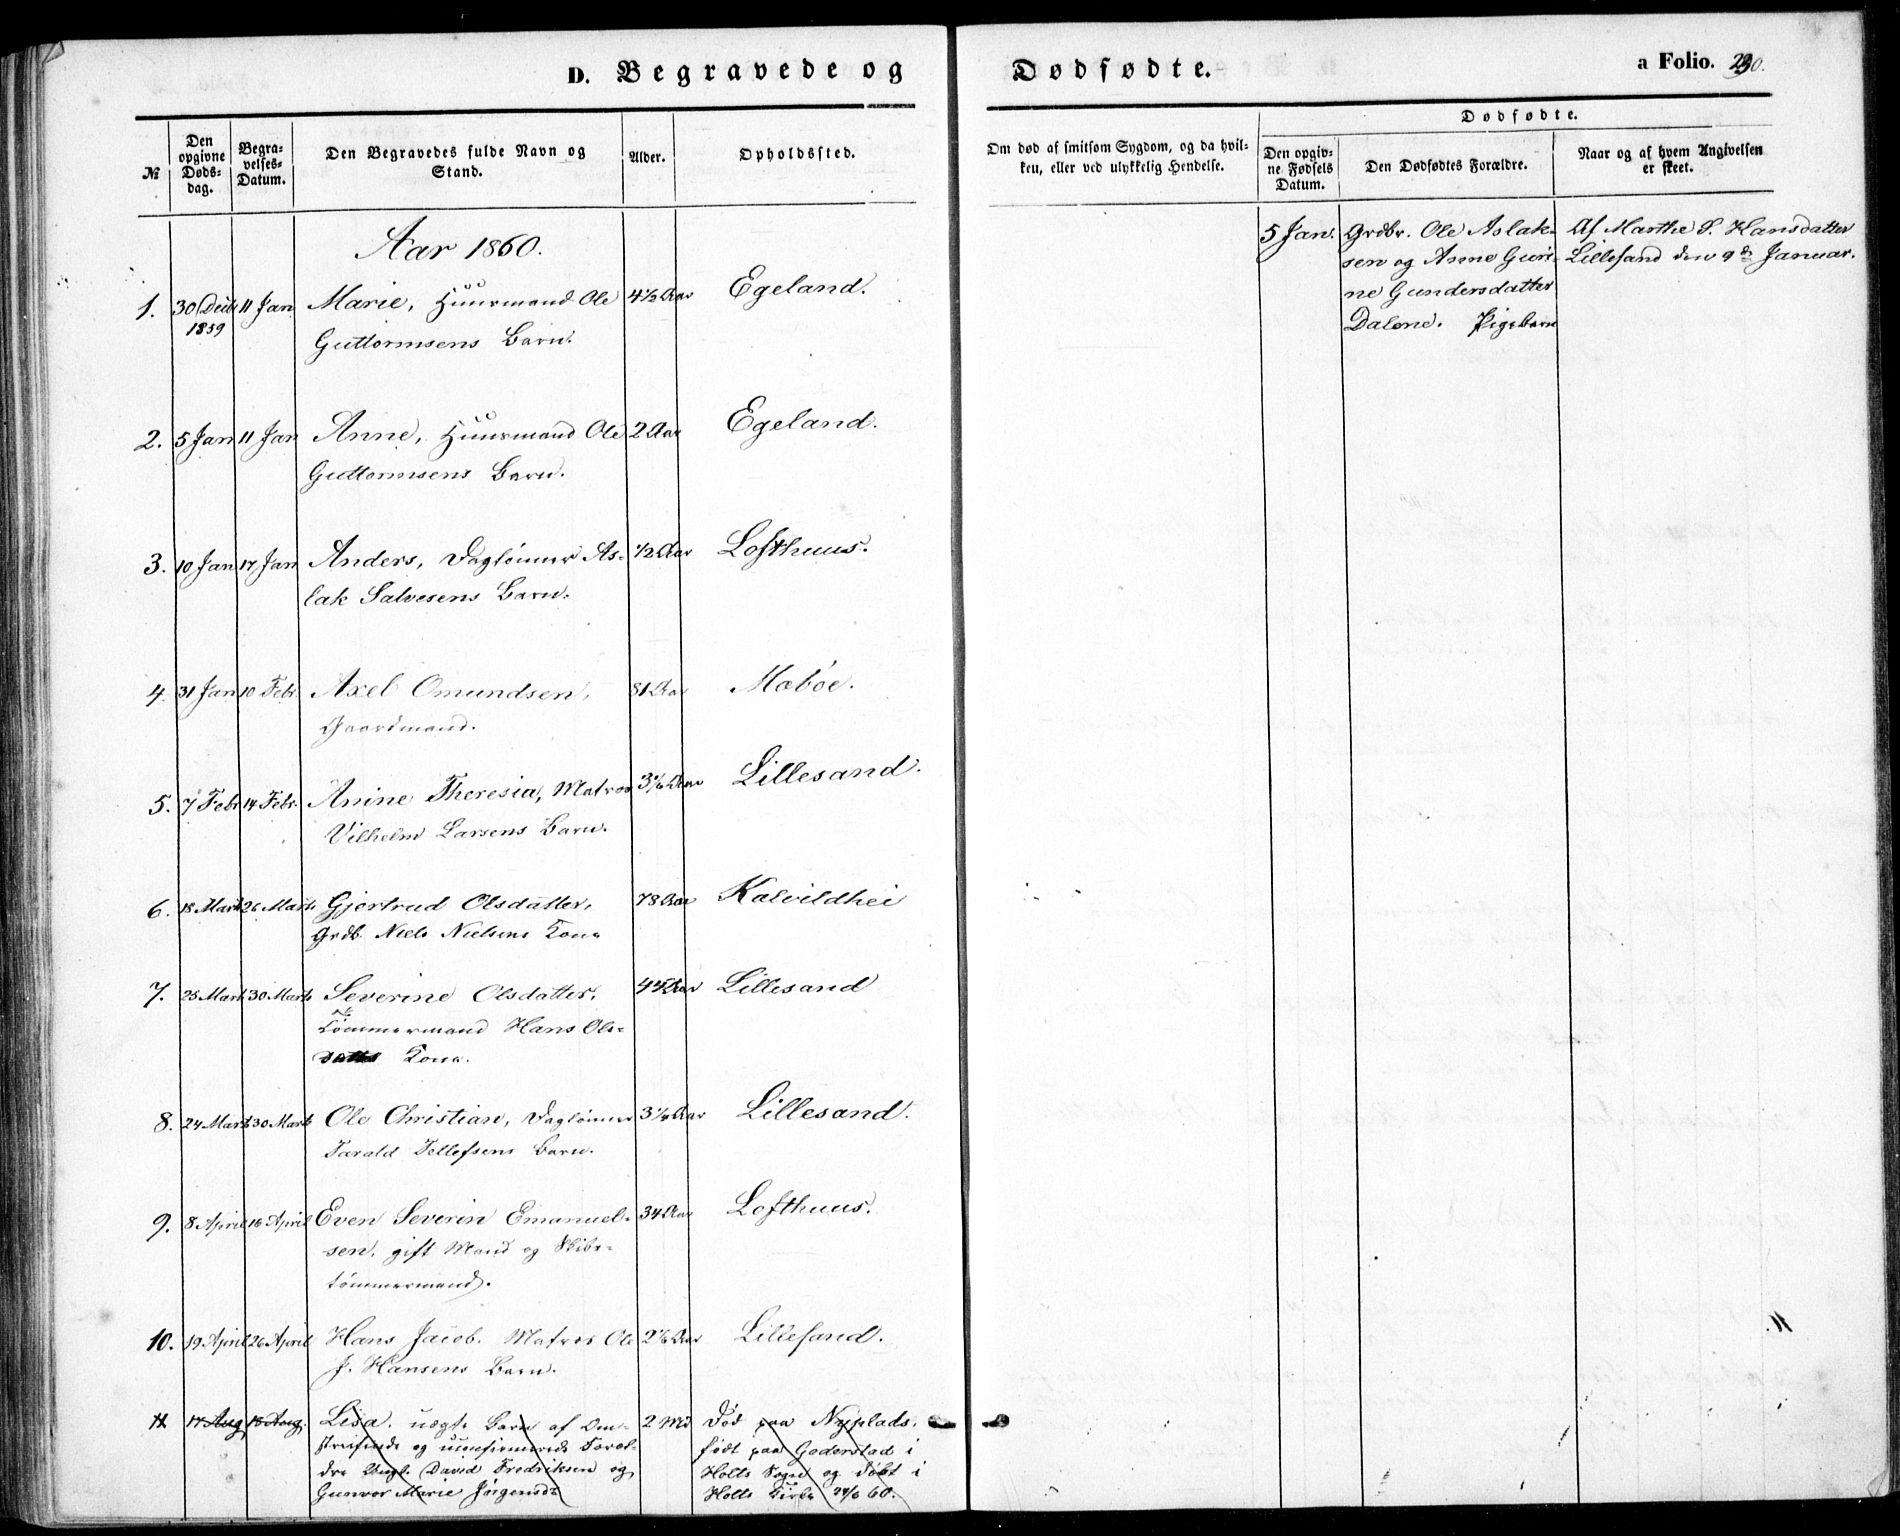 D. Begravede og Dødfødte.
a Folio. 230.
№
Den opgivne Døds-dag.
Begra-velses-Datum.
Den Begravedes fulde Navn og Stand.
Alder.
Opholdssted.
Om død af smitsom Sygdom, og da hvil-ken, eller ved ulykkelig Hendelse.
Dødfødte.
Den opgiv-ne Fødsels Datum.
Den Dødfødtes Forældre.
Naar og af hvem Angivelsen er skeet.
Aar 1860.
1. 30 Decbr 11 Jan Marie, Huusmand Ole 4½ Aar Egeland.
1859 Guttormsens Barn.
2. 5 Jan 11 Jan Anne, Huusmand Ole 2 Aar Egeland.
Guttormsens Barn.
3. 10 Jan 17 Jan Anders, Daglønner As- ½ Aar Lofthuus.
lak Salvesens Barn.
4. 31 Jan 10 Febr. Axel Omundsen, 81 Aar Mobøe.
Gaardmand.
5. 7 Febr 14 Febr. Anine Theresia, Matros Aar Lillesand.
Vilhelm Larsens Barn.
6. 18 Marts 26 Marts Gjertrud Olsdatter, 78 Aar Kalvildhei
Grdb. Niels Nielsens Kone
7. 25 Marts 30 Marts Severine Olsdatter, 44 Aar Lillesand
Tømmermand Hans Ols-
Kone.
8. 24 Marts 30 Marts Ole Christian, Daglønner Aar Lillesand.
Tarald Tellefsens Barn.
9. 8 April 16 April Even Severin Emanuel- 34 Aar Lofthuus.
sen, gift Mand og Skibs-
tømmermand.
10. 19 April 26 April Hans Jacob. Matros Ole 2⅙ Aar Lillesand.
J. Hansens Barn.
11 17 Aug 18 Aug. Lisa. uægte Barn af Om- 2 Md Død paa Nyplads,
streifende og uconfirmerede Foræl- født paa Goderstad i
dre Ungk. David Fredriksen og Holts Sogn og døbt i
Gunvor Marie Jørgensdr Holts Kirke 24/6 60.
5 Jan. Grdbr. Ole Aslak- Af Marthe S. Hansdatter
sen og Anne Guri- Lillesand den 9de Januar.
ne Gundersdatter
Dalene. Pigebarn
11.